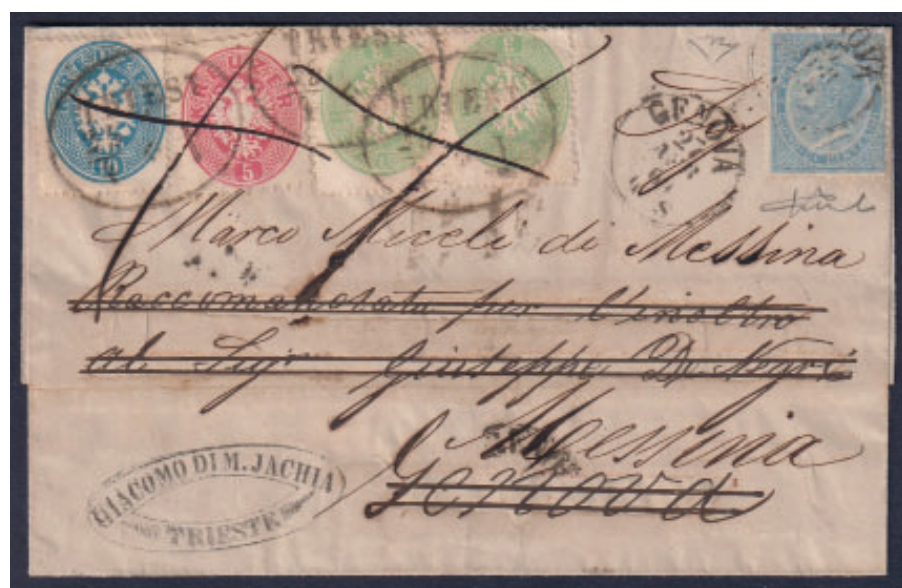 TRIEST
TRIEST
TRIEST
KREUZER
KREUZER
10
5
GENOVA
Marco Miceli di Messina
Raccomandata per l'inoltro
al Sigr Giuseppe De Negri
Messina
Genova
GIACOMO DI M. JACHIA
TRIESTE